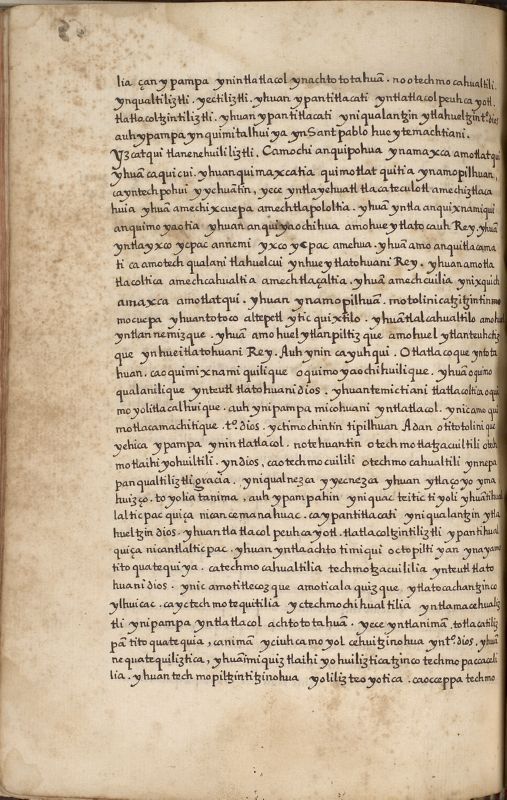 lia çan ypampa ynintlatlacol ynachtotahuā. nootechmocahualtili.
ynqualtiliztli. yectiliztli. yhuan ypantitlacati yntlatlacolpeuhcayotl.
tlatlacoltzintiliztli. yhuan ypantitlacati yniqualantzin ytlahueltzin tᵒ. dios
auh ypampa ynquimitalhuiya ynSant pablo hueytemachtiani.
Yzcatqui tlanenehuililiztli. Camochi anquipohua ynamaxca amotlatqui
yhuā caquicui. yhuan quimaxcatia quimotlatquitia ynamopilhuan,
cayntechpohui yychuātin, yece yntla yehuatl tlacatecolotl amechiztlaca
huia yhuā amechixcuepa amechtlapololtia. yhuā yntla anquixnamiqui
anquimoyaotia yhuan anquiyaochihua amohueytlatocauh Rey. yhuā
yntla yxco ycpac annemi yxco ycpac amehua. yhuā amo anquitlacama
ti ca amotech qualani tlahuelcui ynhueytlatohuani Rey. yhuan amotla
tlacoltica amechcahualtia amechtlaçaltia. yhuā amechcuilia ynixquich
amaxca amotlatqui. yhuan ynamopilhuā. motolinicatzitzintin mo
mocuepa yhuan totoco altepetl ytic quixtilo. yhuā tlalcahualtilo amohuel
yntlan nemizque. yhuā amo huel ytlan piltiz que amo huel ytlan teuhctiz
que ynhueitlatohuani Rey. Auh ynin cayuhqui. Otlatlacoque yntota
huan. caoquimixnamiquilique oquimoyaochihuilique. yhuā oquimo
qualanilique ynteutl tlatohuani dios. yhuan temictiani tlatlacoltica oqui
moyolitlacalhuique. auh ynipampa micohuani yntlatlacol. ynic amo qui
motlacamachitique. tᵒ. dios. yctimochintin tipilhuan Adan otitotolinique
yehica ypampa ynintlatlacol. notehuantin otechmotlatzacuiltili otech
motlaihiyohuiltili. yn dios, caotechmocuilili otechmocahualtili ynnepa
panqualtiliztli gracia. yniqualnezca yyecnezca yhuan ytlaçoyo yma
huizço. toyolia tanima, auh ypampahin yniquac teitic tiyoli yhuā tihua
laltic pac quiça nican cemanahuac. caypantitlacati yniqualantzin ytla
hueltzin dios. yhuan tlatlacolpeuhcayotl. tlatlacoltzintiliztli ypantihual
quiça nican tlalticpac. yhuan yntlaachto timiqui octopiltiyan ynayamo
titoquatequiya. catechmocahualtilia techmotzacuililia ynteutl tlato
huani dios. ynic amotitlecozque amoticalaquizque ytlatocachantzinco
ylhuicac. cayctechmotequitilia yctechmochihualtilia yntlamacehualiz
tli ynipampa yntlatlacol achtotahuā. yece yntlanimā, totlacatiliz
pā titoquatequia, canimā yciuhca moyolcehuitzinohua yn tᵒ. dios. yhuā
nequatequiliztica, yhuā ynimiquiz tlaihiyohuiliztica tzinco techmopaccaceli
lia. yhuan techmopiltzintitzinohua yoliliz teoyotica. caocceppa techmo